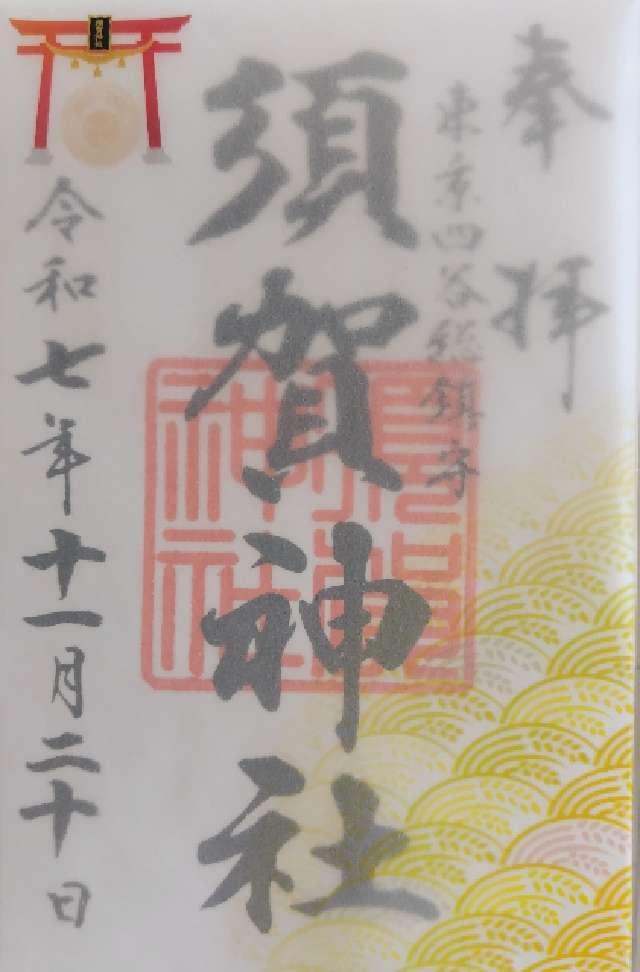 奉拝
東京四谷総鎮守
須賀神社
須賀神社
令和七年十一月二十日